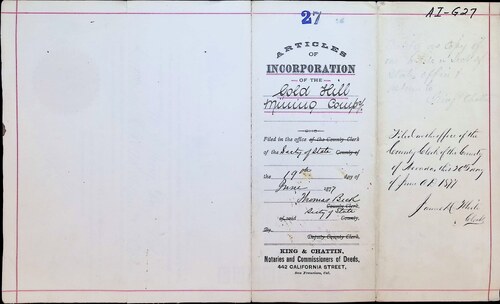 27
AI-G27
ARTICLES
OF
INCORPORATION
OF THE
Gold Hill
Mining Compy.
Filed in the office of the County Clerk
of the Secty of State County of
the 19th day of
June 1877
Thomas Beck
County Clerk
Secty of State
of said County.
By
Deputy County Clerk.
KING & CHATTIN,
Notaries and Commissioners of Deeds,
442 CALIFORNIA STREET,
San Francisco, Cal.
Filed in the office of the
County Clerk of the County
of Nevada, this 20th day
of June A.D. 1877
James
Clerk